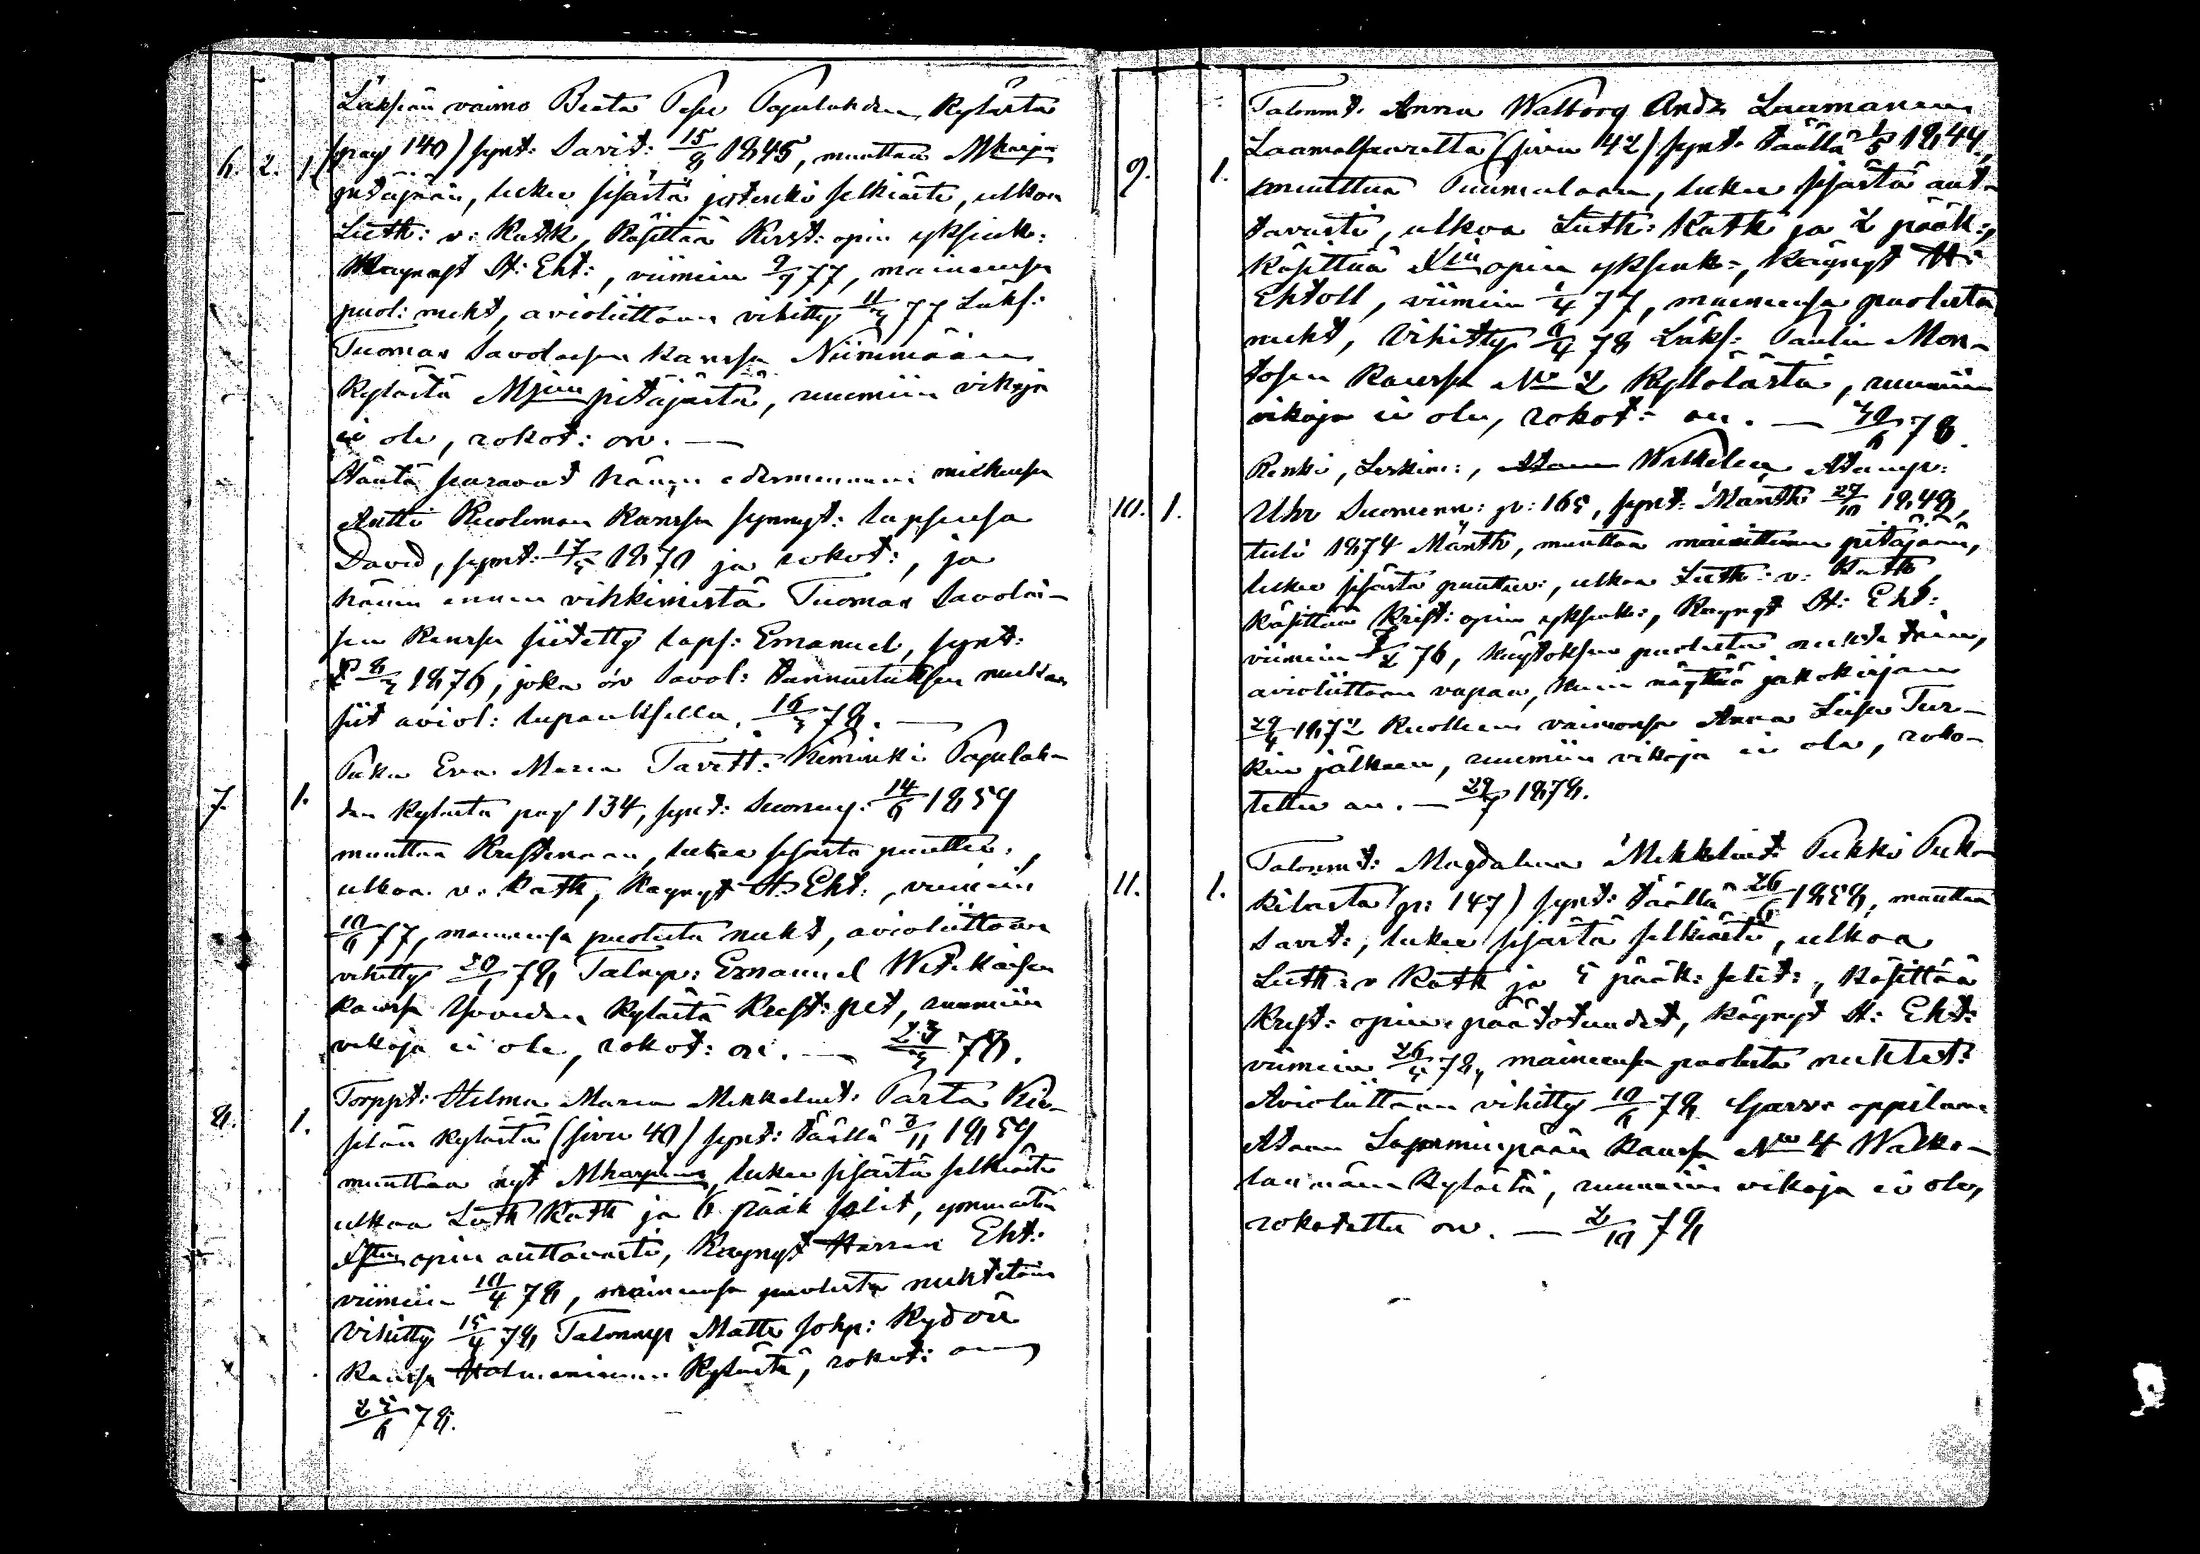 Läksiän vaimo Beata Pesu Papulahden kylästä
6. 2. 1. (pag 140) synt: Savit: 15/8 1845, muuttaa Mharju
pitäjään, lukee sisästä jotenki selkiästi, ulkoa
Luth: v: Katk, käsittää Krist: opin yksink:
Käynyt H: Eht:, viimein 9/9 77, maineensa
puol: nuht, avioliittoon vihitty 11/4 77 Läks:
Tuomas Savolaisen kanssa Niinimäen
kylästä pitäjästä, ruumiin vikoja
ei ole, rokot: on. —
Häntä seuraavat hänen edesmenneen miehensä
Antti Kuolman kanssa synnyt: lapsensa
David, synt: 17/5 1870 ja rokot:, ja
hänen ennen vihkimistä Tuomas Savolai-
sen kanssa siitetty laps: Emanuel, synt:
8/3 1876, joka on Savol: tunnustuksen mukaan
siit aviol: lupauksella. 16/3 78. —
Piika Eva Maria Tavett: Kiminki Papulah-
7. 1. den kylästä pag 134, synt: Suomny: 14/6 1859
muuttaa Kristinaan, lukee sisästä puuttu:,
ulkoa v: Katk, Käynyt H: Eht:, viimein
10/6 77, maineensa puolesta nuht, avioliittoon
vihitty 20/1 78 Taluys: Emanuel Wit:kaisen
kanssa kylästä Krist: pit, ruumiin
vikoja ei ole, rokot: on. — 23/3 78.
Torppt: Hilma Maria Mikkelint: Parta Kir-
8. 1. selän kylästä (sivu 40) synt: täällä 3/11 1859
muuttaa nyt Mharjuun, lukee sisästä selkiästi
ulkoa Luth Katk ja 6 pääk selit, ymmärtää
opin auttavasti, Käynyt Herran Eht:
viimein 10/4 78, maineensa puolesta nuhteetoin
vihitty 15/4 78 Talonnyp Matti Johp: Kydön
kanssa kylästä, rokot: on
25/6 78.
Talonnt: Anna Walborg Andr Laamanen
Laamalasaaretta (sivu 42) synt: täällä 1/5 1844,
9. 1. muuttaa Puumalaan, lukee sisästä aut-
tavasti, ulkoa Luth: Katk ja 2 pääk:,
Käsittää opin yksink:, Käynyt H:
Ehtoll, viimein 1/4 77, maineensa puolesta
nuht, Vihitty 8/4 78 Läks: Paulin Mon-
tosen kanssa No 2 kylästä, ruumiin
vikoja ei ole, rokot: on. — 30/6 78.
Renki, Leskim:, Wilhelm Adamp:
10. 1. Uhr Suomenn: p: 165, synt: Mänth 27/10 1848,
tuli 1874 Mänth, muuttaa mainittuun pitäjään,
lukee sisästä puuttuv:, ulkoa Luth: v: Katk
käsittää Krist: opin yksink:, Käynyt H: Eht:
viimein 2/2 76, käytöksen puolesta nuhteetoin,
avioliittoon vapaa, kuin näyttää jakokirjan
29/4 1872 kuolleen vaimonsa Anna Liisa Tur-
kin jälkeen, ruumiin vikoja ei ole, roko-
tettu on. — 29/7 1878.
Talonnt: Magdalena Mikkelint: Pukki Puk-
11. 1. kilasta (p: 147) synt: täällä 26/6 1858, muuttaa
Savit:, lukee sisästä selkiästi, ulkoa
Luth: v Katk ja 5 pääk: selit:, käsittää
Krist: opin päätotuudet, käynyt H: Eht:
viimein 26/4 78, maineensa puolesta nuhteet:
Avioliittoon vihitty 10/6 78 oppilaan
Adam Lapinmiespään kanssa No 4 Walko-
lanmäen kylästä, ruumiin vikoja ei ole,
rokotettu on. — 2/10 78